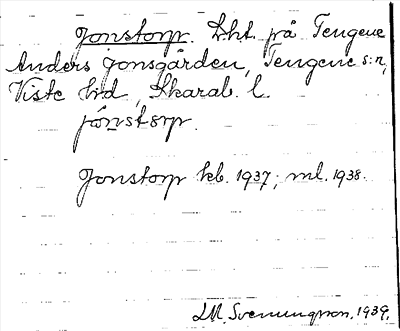 Jonstorp. Lht. på Tengene
Anders Jonsgården, Tengene s:n,
Viste hd, Skarab. l.
jónstorp.
Jonstorp kb. 1937; ml. 1938.
LM. Svenungsson. 1939.